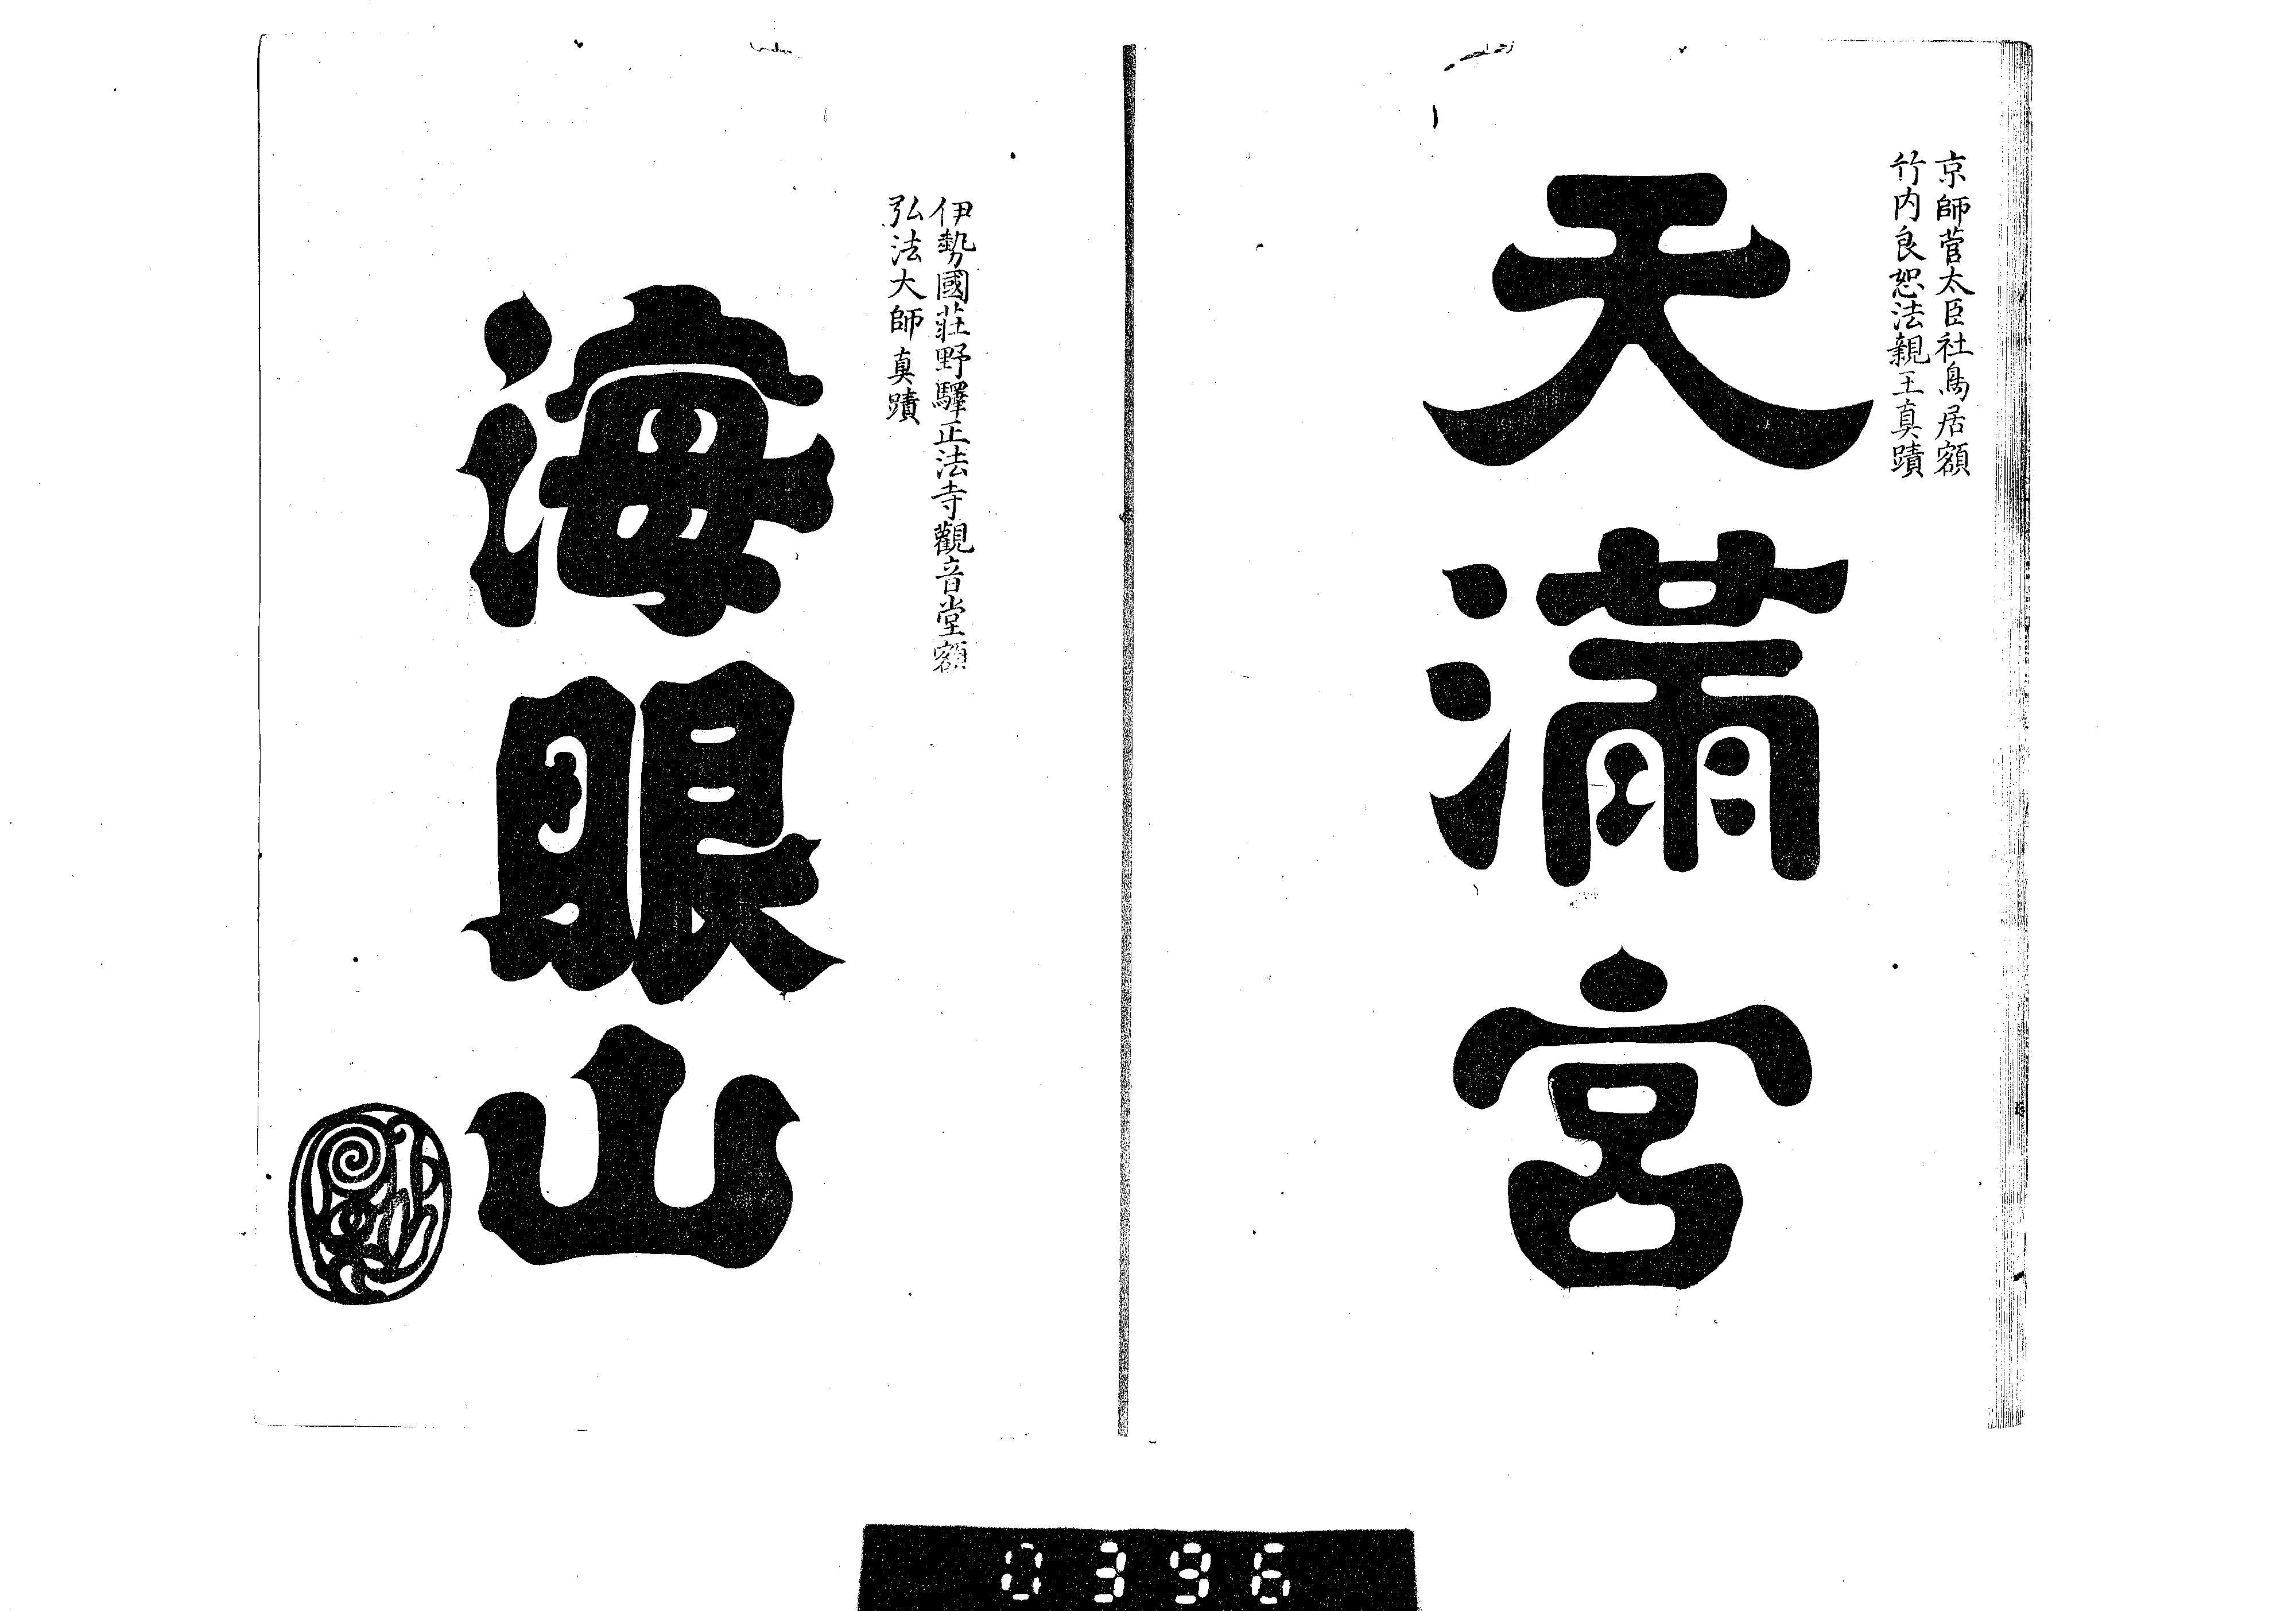 京師菅太臣社鳥居額
竹内良恕法親王真蹟
天滿宮
伊勢國莊野驛正法寺觀音堂額
弘法大師真蹟
海眼山
0396